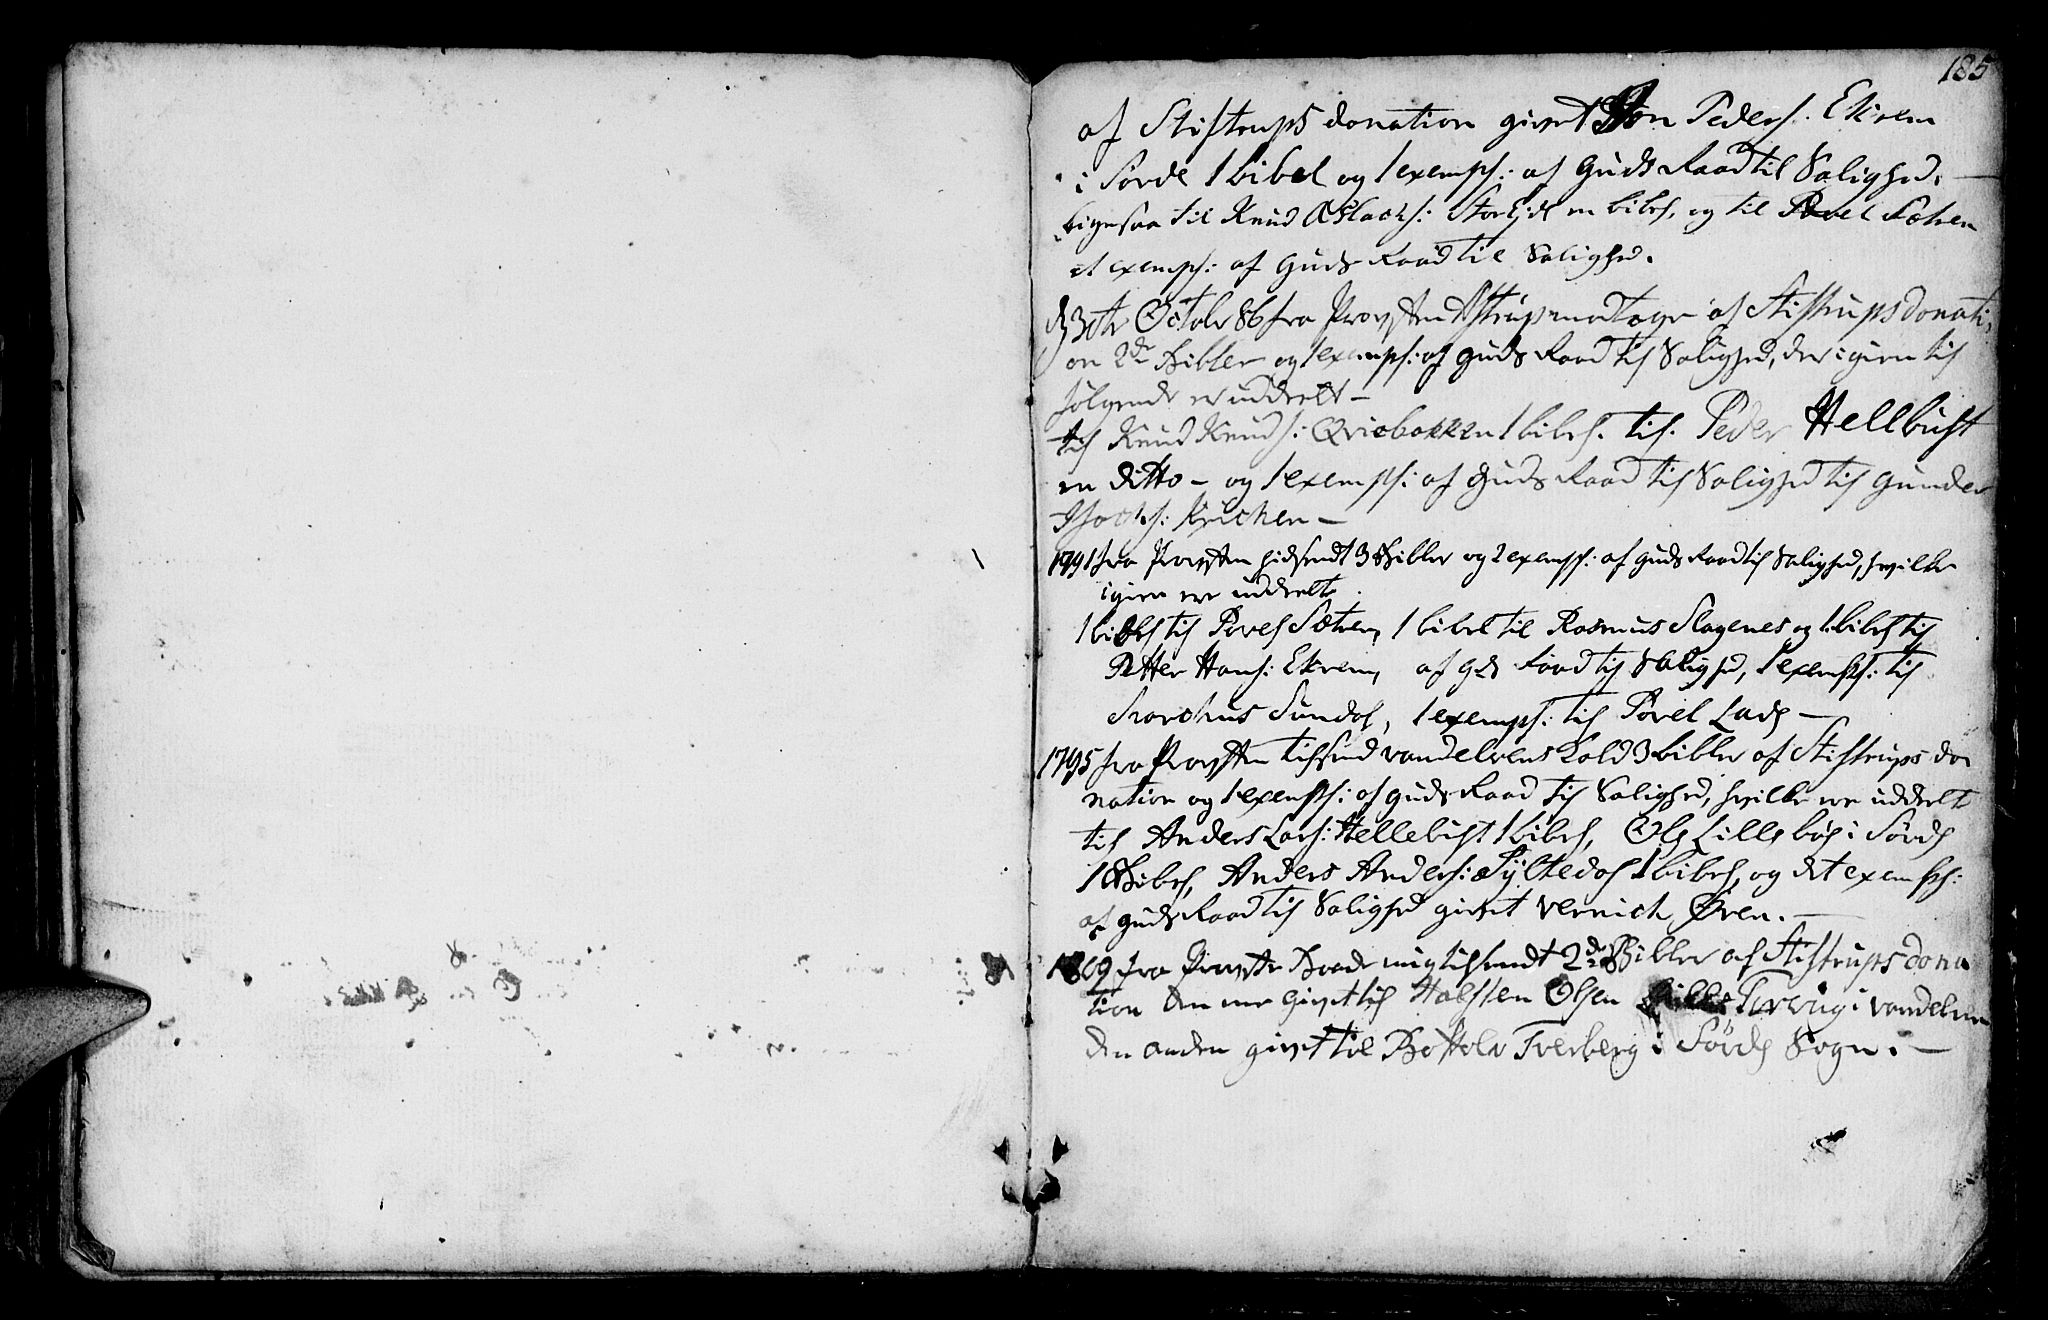 185
af Stistrups donation givet Jon Peders. Ekrem
i Sørde 1 bibel og 1 exempl: af Guds Raad til Salighed.
ligesaa til Knud Aslachs: Storeide en bibel, og til Povel Sætren
et exempl: af Guds Raad til Salighed.
d 3die Octobr 86 fra Provsten Astrup modtaget af Stistrups donati-
on 2de Bibler og 1 exempl: af Guds Raad til Salighed, der igien til
følgende er uddeelt —
til Knud Knuds: Qviebakken 1 bibel. til Peder Hellebust
en ditto — og 1 exempl: af Guds Raad til Salighed til Gunder
Isachs: Krichen —
1791 fra Provsten hidsendt 3 Bibler og 2 exempl: af Guds Raad til Salighed, hvilke
igien ere uddeelte
1 bibel til Povel Sætren, 1 bibel til Rasmus Slagenes og 1 bibel til
Petter Hans: Ekrem, af Gds Raad til Salighed, 1 exempl: til
Sundal, 1 exempl: til Povel Lade —
1795 fra Provsten tilsend vandelvens Kald 3 bibler af Stistrups do-
nation og 1 exempl: af Guds Raad til Salighed, hvilke ere uddeelt
til Anders Lars: Hellebust 1 bibel, Ole Lillebøe i Sørde
1 Bibel, Anders Anders: Syltedal 1 bibel, og det exempl:
af Guds Raad til Salighed givet Vernich Øren. —
1809 fra Provst Buede mig tilsendt 2de Bibler af Stistrups dona
tion den ene givet til Halsten Olsen i vandelven
den anden givet til Bottolv Tverberg i Sørde Sogn. —